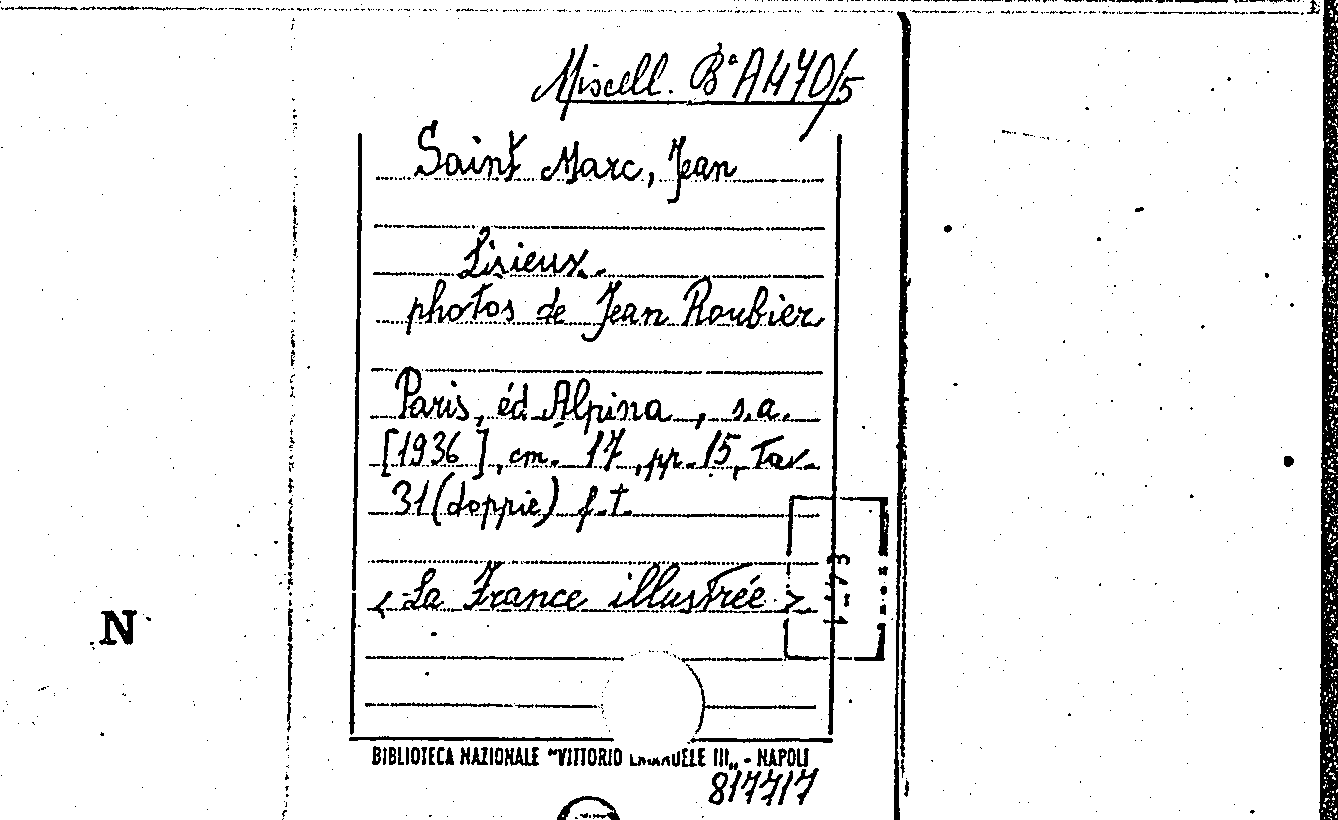 Miscell. Bª A470/5
Saint Marc, Jean
Lisieux.
photos de Jean Roubier
Paris, éd Alpina, s.a.
[1936], cm. 17, pp. 15, Tav.
31 (doppie) f.t.
< La France illustrée >
N
BIBLIOTECA NAZIONALE "VITTORIO EMANUELE III„ - NAPOLI
817717